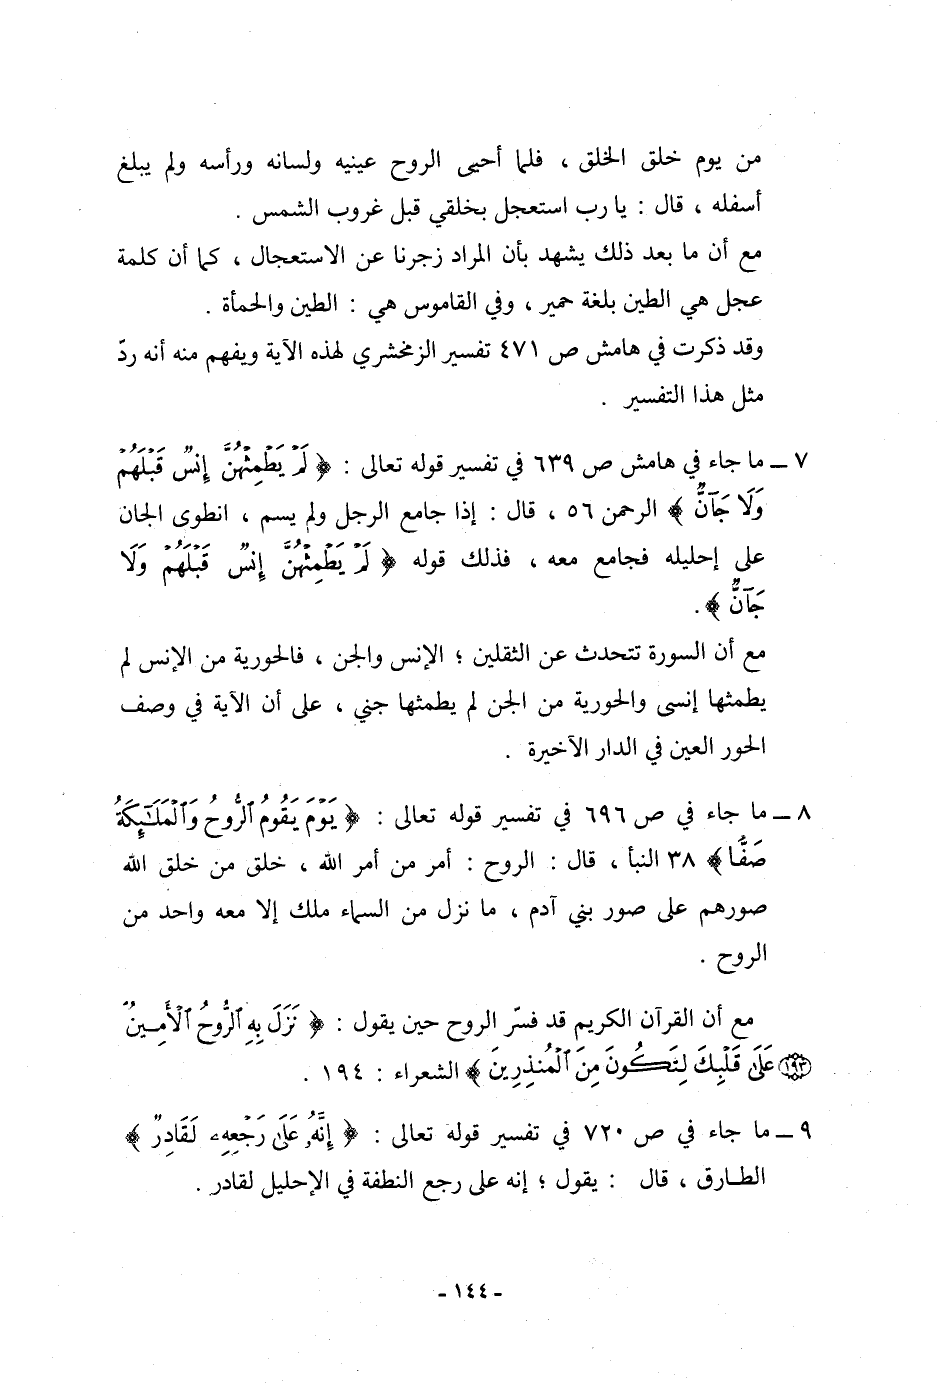 من يوم خلق الخلق ، فلما أحيى الروح عينيه ولسانه ورأسه ولم يبلغ
أسفله ، قال : يا رب استعجل بخلقي قبل غروب الشمس .
مع أن ما بعد ذلك يشهد بأن المراد زجرنا عن الاستعجال ، كما أن كلمة
عجل هي الطين بلغة حمير ، وفي القاموس هي : الطين والحمأة .
وقد ذكرت في هامش ص ٤٧١ تفسير الزمخشري لهذه الآية ويفهم منه أنه ردّ
مثل هذا التفسير .
٧ ـ ما جاء في هامش ص ٦٣٩ في تفسير قوله تعالى : ﴿ لَمْ يَطْمِثْهُنَّ إِنسٌ قَبْلَهُمْ
وَلَا جَآنٌّ ﴾ الرحمن ٥٦ ، قال : إذا جامع الرجل ولم يسم ، انطوى الجان
على إحليله فجامع معه ، فذلك قوله ﴿ لَمْ يَطْمِثْهُنَّ إِنسٌ قَبْلَهُمْ وَلَا
جَآنٌّ ﴾ .
مع أن السورة تتحدث عن الثقلين ؛ الإنس والجن ، فالحورية من الإنس لم
يطمثها إنسى والحورية من الجن لم يطمثها جني ، على أن الآية في وصف
الحور العين في الدار الآخرة .
٨ ـ ما جاء في ص ٦٩٦ في تفسير قوله تعالى : ﴿ يَوْمَ يَقُومُ ٱلرُّوحُ وَٱلْمَلَٰٓئِكَةُ
صَفًّا ﴾ ٣٨ النبأ ، قال : الروح : أمر من أمر الله ، خلق من خلق الله
صورهم على صور بني آدم ، ما نزل من السماء ملك إلا معه واحد من
الروح .
مع أن القرآن الكريم قد فسّر الروح حين يقول : ﴿ نَزَلَ بِهِ ٱلرُّوحُ ٱلْأَمِينُ
١٩٣ عَلَىٰ قَلْبِكَ لِتَكُونَ مِنَ ٱلْمُنذِرِينَ ﴾ الشعراء : ١٩٤ .
٩ ـ ما جاء في ص ٧٢٠ في تفسير قوله تعالى : ﴿ إِنَّهُۥ عَلَىٰ رَجْعِهِۦ لَقَادِرٌ ﴾
الطارق ، قال : يقول ؛ إنه على رجع النطفة في الإحليل لقادر .
- ١٤٤ -